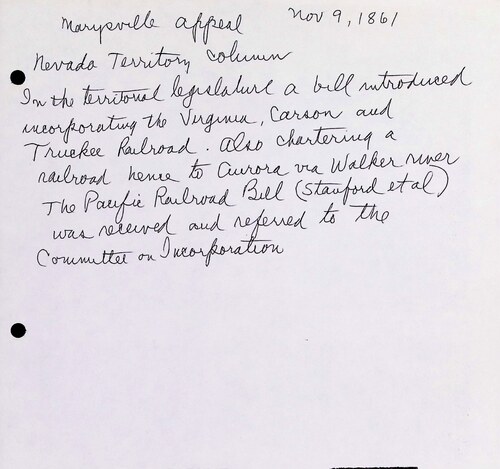 Marysville Appeal Nov 9, 1861
Nevada Territory Column
In the territorial legislature a bill introduced
incorporating the Virginia, Carson and
Truckee Railroad. Also chartering a
railroad hence to Aurora via Walker river
The Pacific Railroad Bill (Stanford et al)
was received and referred to the
Committee on Incorporation